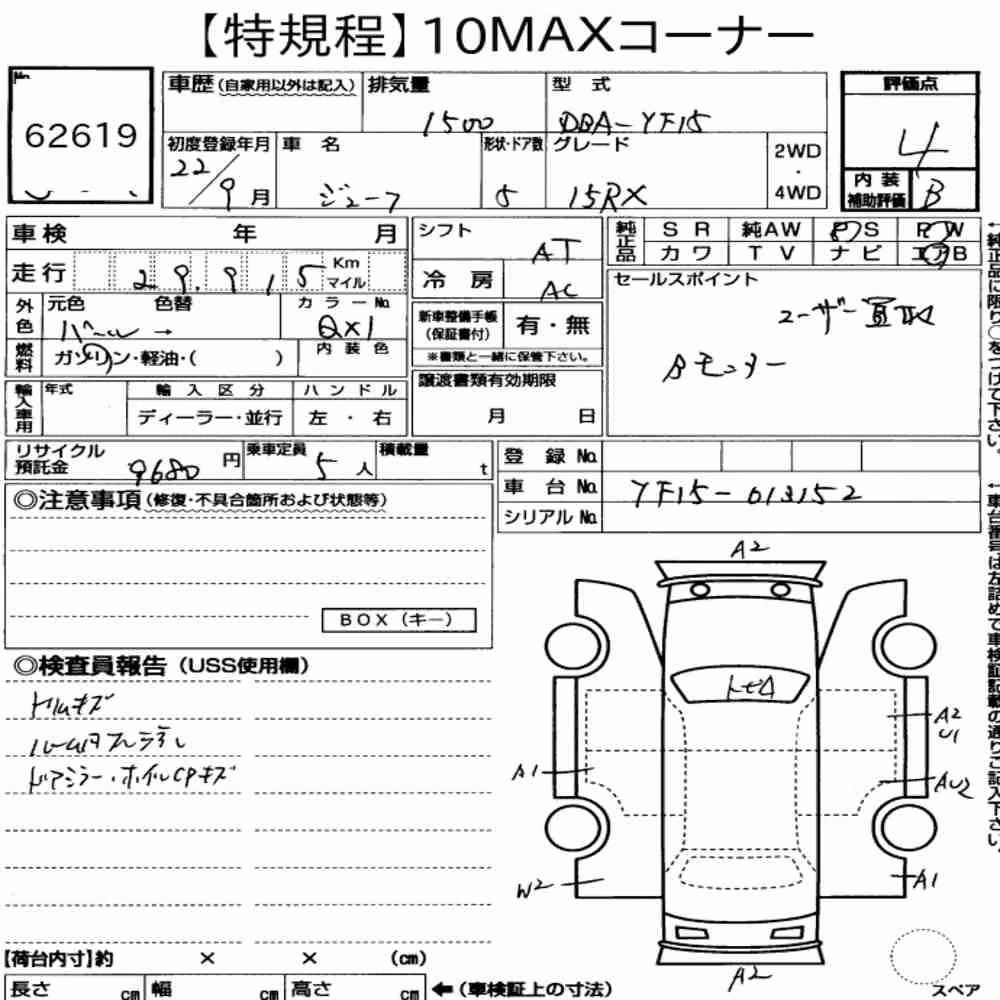 【特規程】10MAXコーナー
No.
62619
車歴(自家用以外は記入)
排気量
1500
型 式
DBA-YF15
初度登録年月
22/9月
車 名
ジューク
形状・ドア数
5
グレード
15RX
2WD
・
4WD
評価点
4
内装補助評価
B
車検 年 月
走行 29,915 Km マイル
外色 元色 色替 カラーNo.
パール → QX1
燃料 ガソリン・軽油・( )
内装色
輸入車用 年式
輸入区分
ディーラー・並行
ハンドル
左 ・ 右
シフト
AT
冷 房
AC
新車整備手帳
(保証書付)
有・無
※書類と一緒に保管下さい。
譲渡書類有効期限
月 日
純正品 SR 純AW PS PW
カワ TV ナビ エアB
セールスポイント
ユーザー買取
Bモニター
←純正品に限り○をつけて下さい。
リサイクル預託金 9680 円
乗車定員 5 人
積載量 t
登 録 No.
車 台 No. YF15-013152
シリアル No.
←車台番号は左詰めで車検証記載の通りご記入下さい。
◎注意事項(修復・不具合箇所および状態等)
BOX(キー)
◎検査員報告(USS使用欄)
ドアミラー・ホイルCPキズ
A2
トビA
A2
U1
A1
AU2
W2
A1
A2
スペア
【荷台内寸】約 × × (cm)
長さ cm 幅 cm 高さ cm ←(車検証上の寸法)